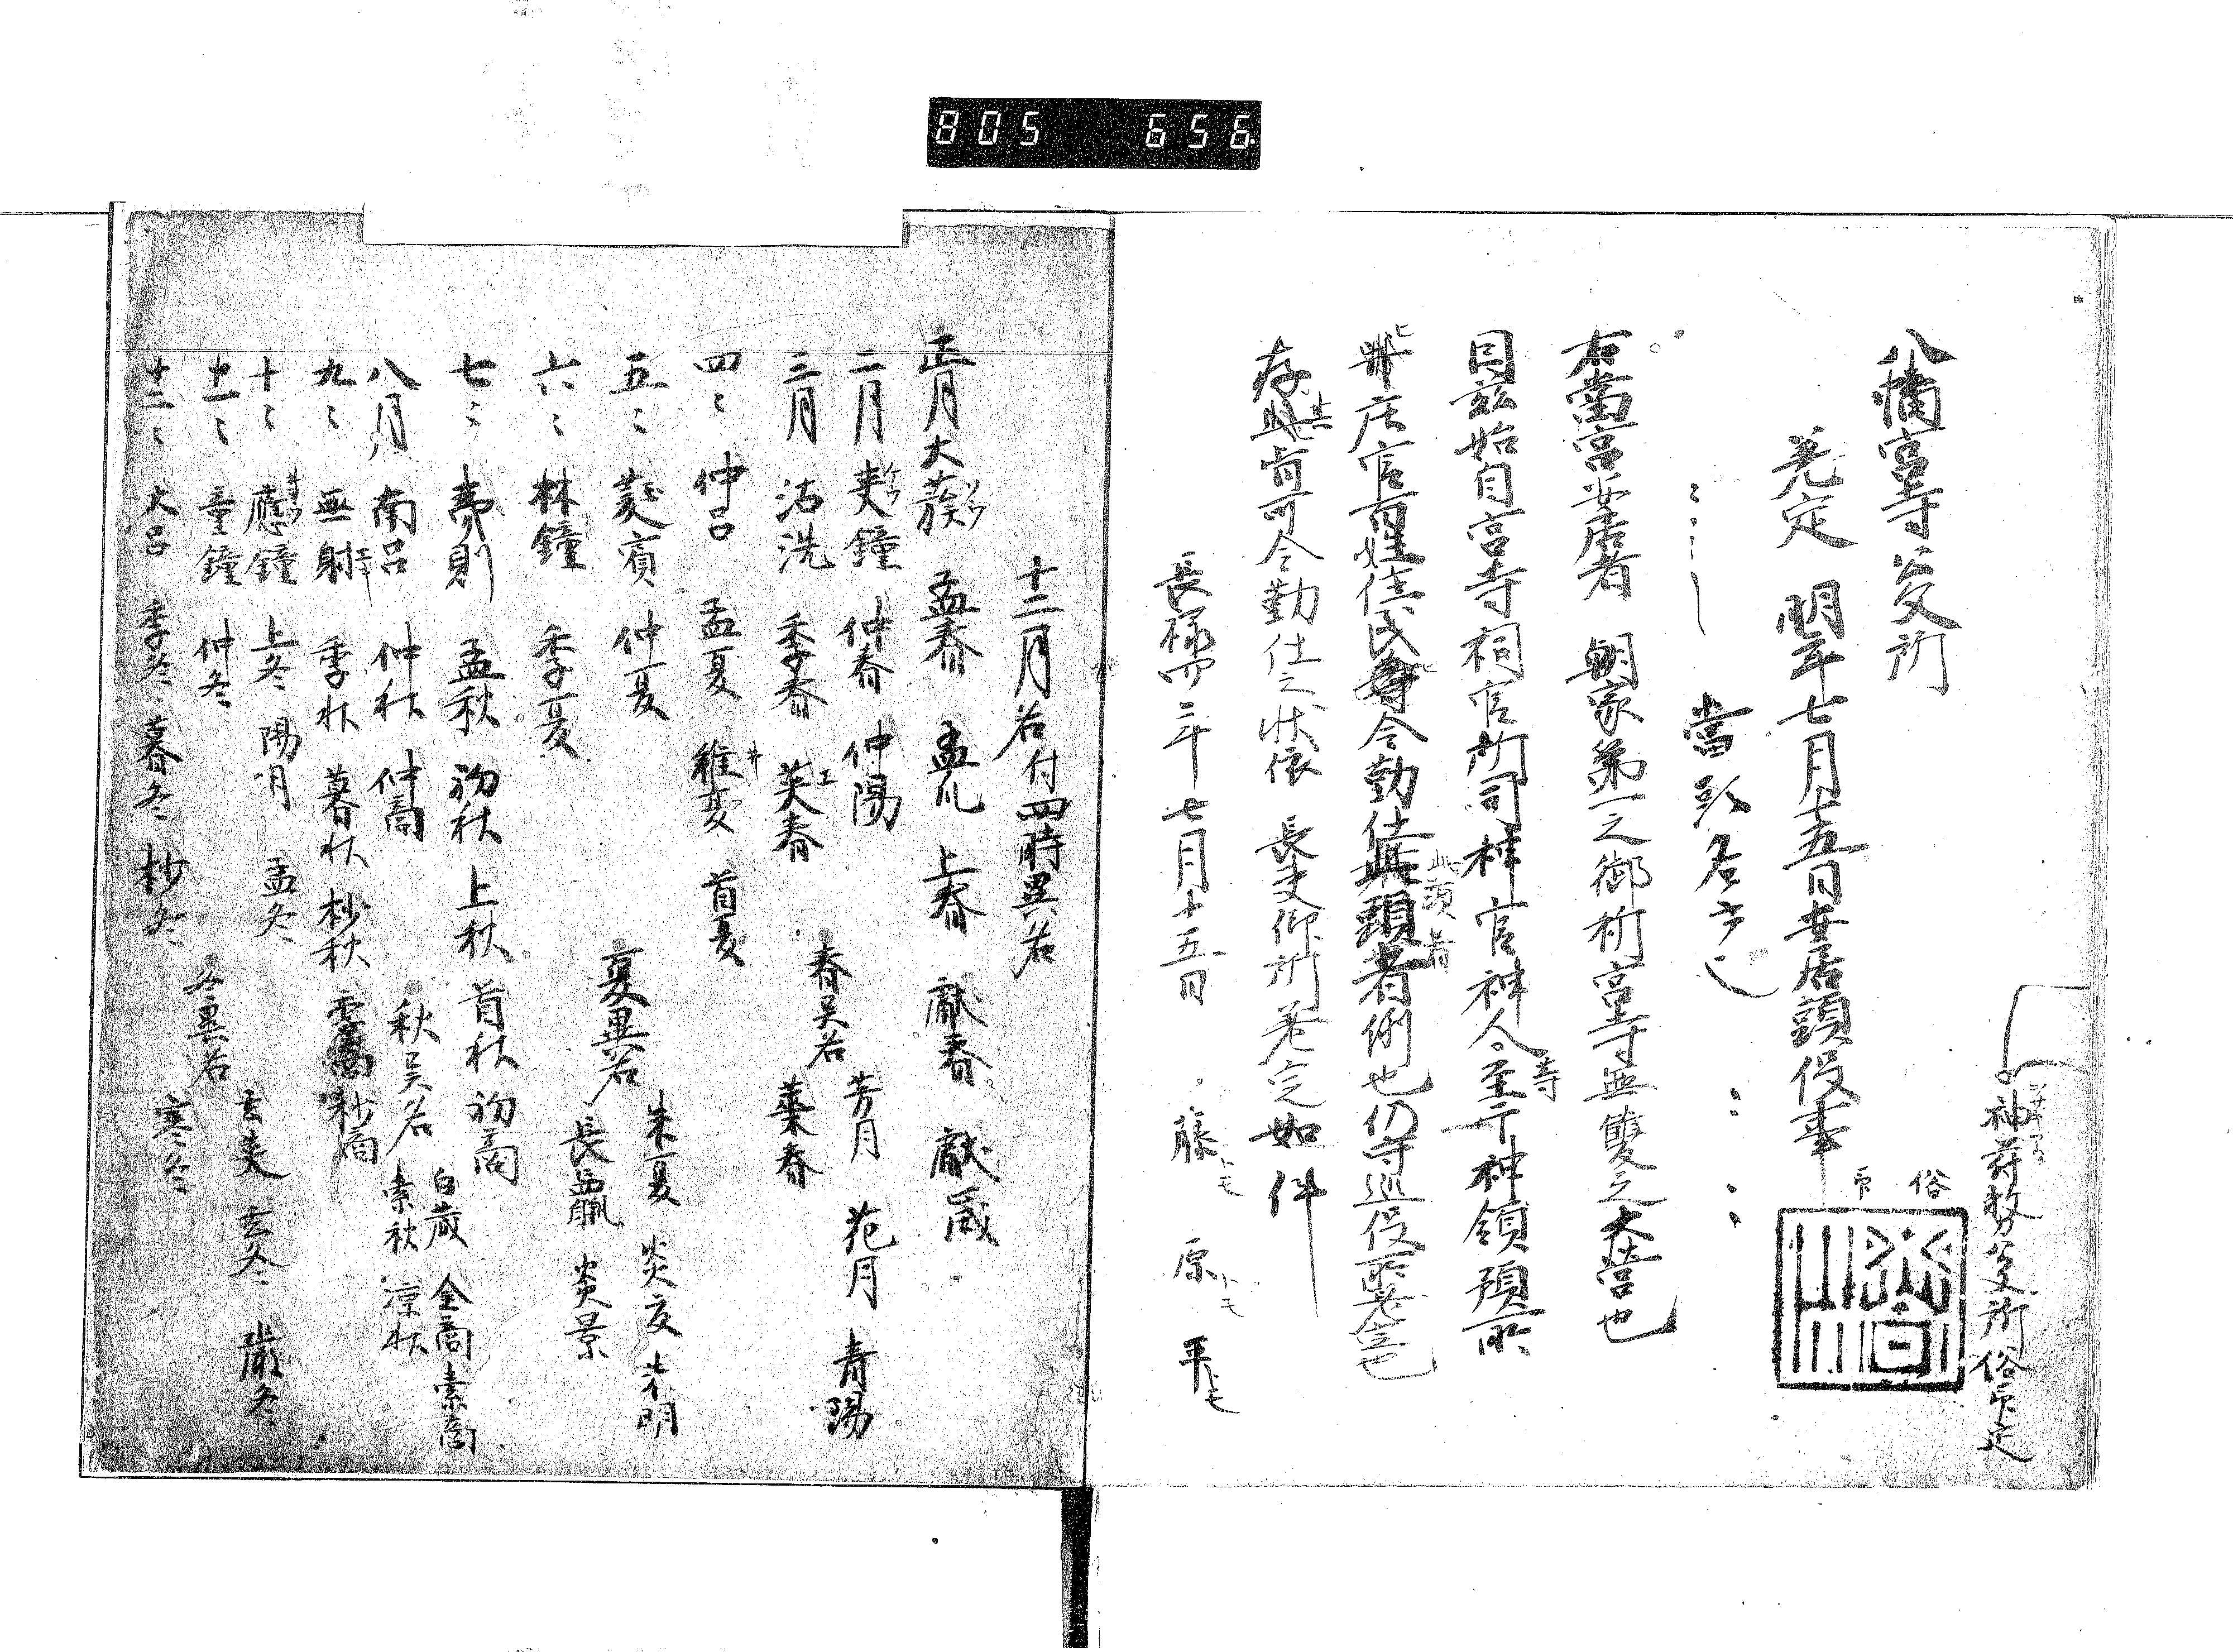 805 656
神蔵数ゟ公文所俗印定
八幡宮寺公文所
差定 明年七月十五日安居頭役事
俗
印
當頭名字
右當宮安居者 朝家第一之御祈宮寺無雙之大営也
因玆始自宮寺祠官所司神官神人等至于神領預所
庄官百姓住民令勤仕此頭者例也仍守巡役所差定也
存此旨可令勤仕之状依 長吏仰所差定如件
長禄四二年七月十五日 藤 原 平
十二月名付四時異名
正月大蔟 孟春 孟陬 上春 献春 献歳
二月夾鐘 仲春 仲陽
三月沽洗 季春 莫春
春異名 芳月 花月 青陽
華春
四〻 仲呂 孟夏 維夏 首夏
五〻 蕤賓 仲夏
六〻 林鐘 季夏
夏異名 朱夏 炎夏 朱明
長嬴 炎景
七〻 夷則 孟秋 初秋 上秋 首秋 初商
八月 南呂 仲秋 仲商
秋異名 白蔵 金商 素商
素秋 涼秋
九〻 無射 季秋 暮秋 杪秋 杪商
十〻 應鐘 上冬 陽月 孟冬
十一〻 黄鐘 仲冬
冬異名 玄英 玄冬 厳冬
寒冬
十二〻 大呂 季冬 暮冬 杪冬